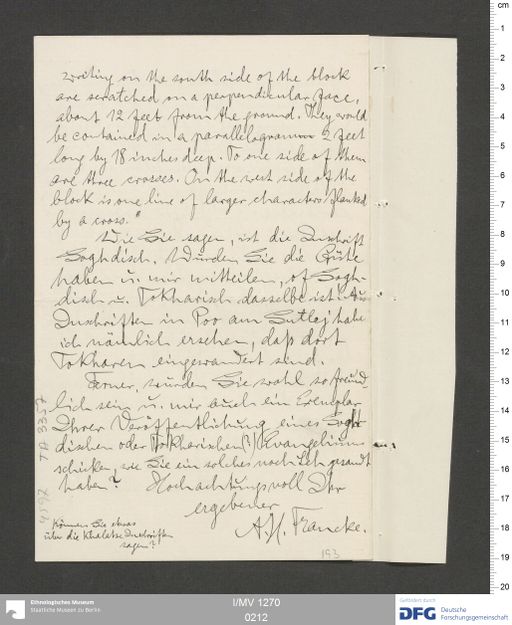 writing on the south side of the block
are scratched on a perpendicular face,
about 12 feet from the ground. They would
be contained in a parallelogramm 2 feet
long by 18 inches deep. To one side of them
are three crosses. On the west side of the
block is one line of larger characters flanked
by a cross."
Wie Sie sagen, ist die Inschrift
Soghdisch. Würden Sie die Güte
haben u. mir mitteilen, of Sogh-
disch u. Tokharisch dasselbe ist? Aus
Inschriften in Poo am Sutlej habe
ich nämlich ersehen, daß dort
Tokharen eingewandert sind.
Ferner, würden Sie wohl so freund-
lich sein u. mir auch ein Exemplar
Ihrer Veröffentlichung eines Sogh-
dischen oder Tokharischen (?) Evangeliums
schicken, wie Sie ein solches nach Leh gesandt
haben? Hochachtungsvoll Ihr
ergebener
A. H. Francke.
Können Sie etwas
über die Khalatse Inschriften
sagen?
TA 3357
193
cm
1
2
3
4
5
6
7
8
9
10
11
12
13
14
15
16
17
18
19
20
Ethnologisches Museum
Staatliche Museen zu Berlin
I/MV 1270
0212
Gefördert durch
DFG
Deutsche
Forschungsgemeinschaft